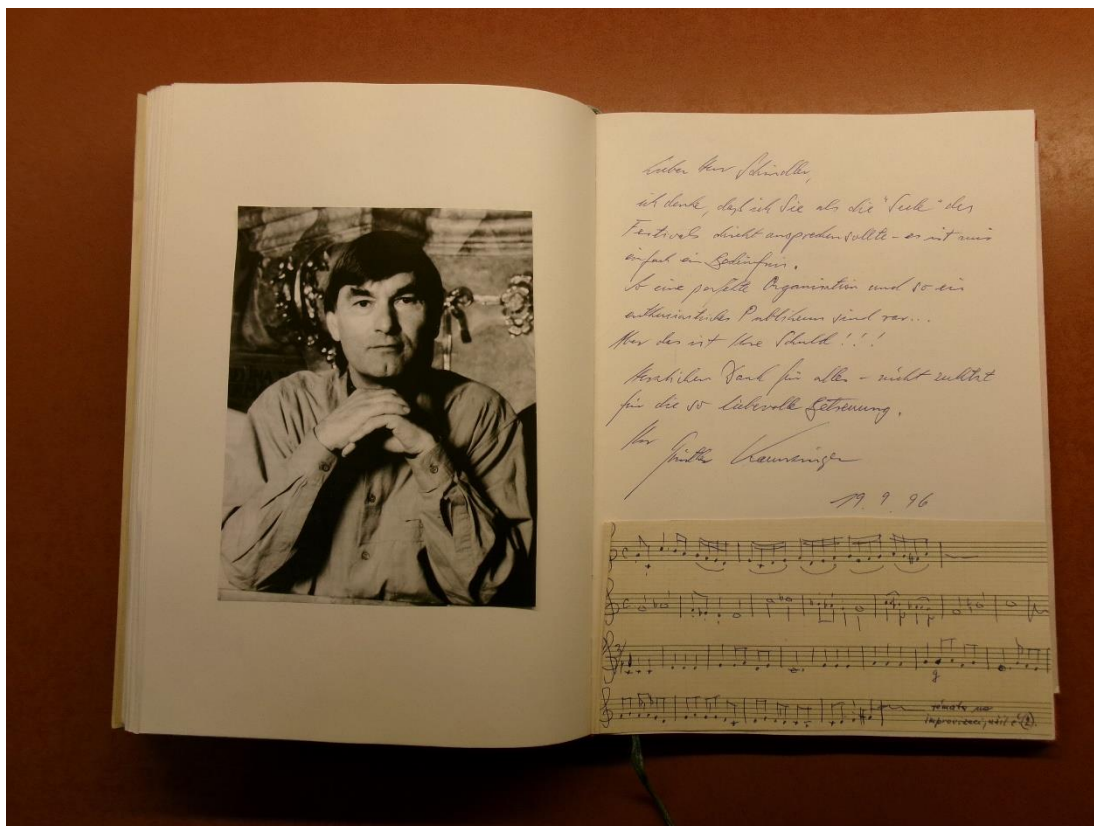 Lieber Herr Schindler,
ich denke, daß ich Sie als die "Seele" des
Festivals direkt ansprechen sollte – es ist mir
einfach ein Bedürfnis.
So eine perfekte Organisation und so ein
enthusiastisches Publikum sind rar...
Aber das ist Ihre Schuld!!!
Herzlichen Dank für alles – nicht zuletzt
für die so liebevolle Betreuung.
Ihr Günther Kaunzinger
19. 9. 96
g
témata na
improvizaci, užil č. 2.